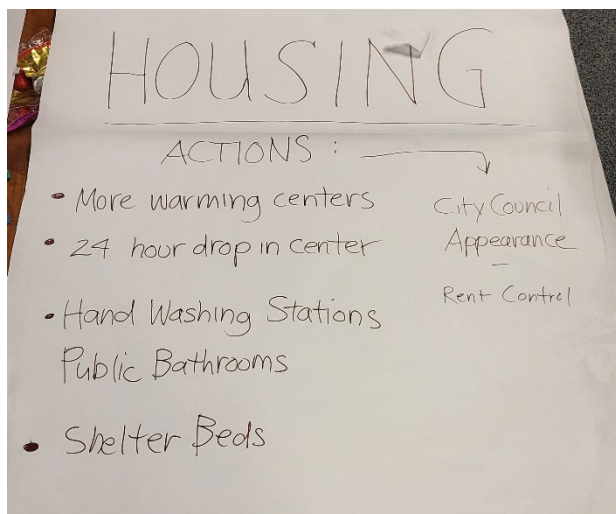 HOUSING
ACTIONS :
• More warming centers
• 24 hour drop in center
• Hand Washing Stations
Public Bathrooms
• Shelter Beds
City Council
Appearance
–
Rent Control